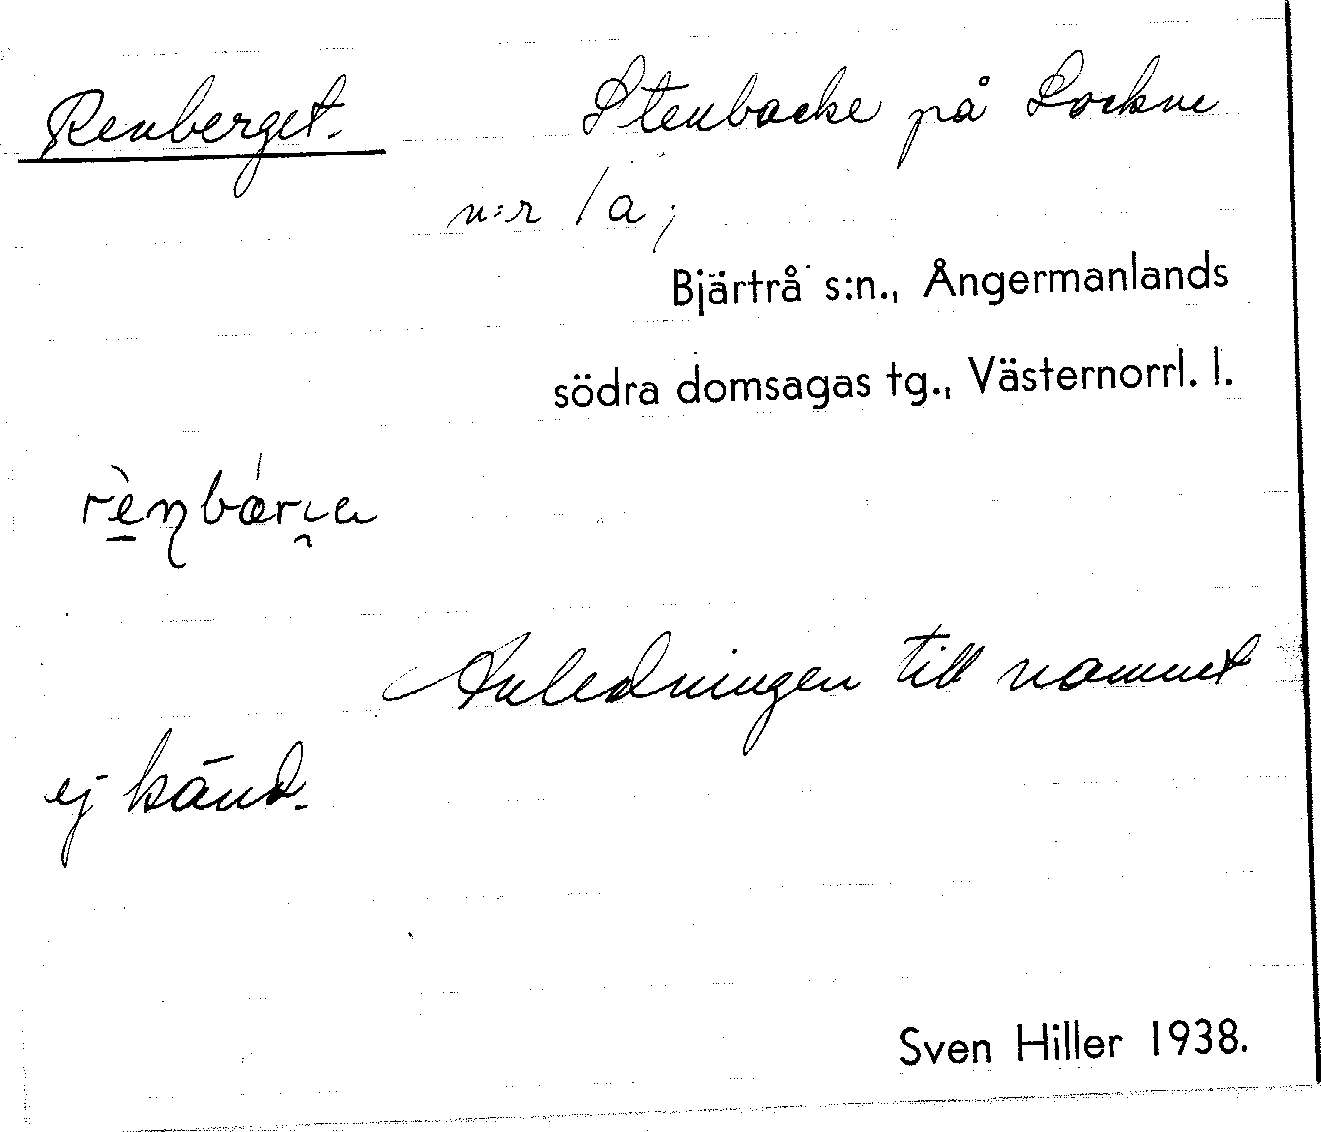 Renberget. Stenbacke på Lockne
n:r 1a;
Bjärtrå s:n., Ångermanlands
södra domsagas tg., Västernorrl. l.
Anledningen till namnet
ej känd.
Sven Hiller 1938.